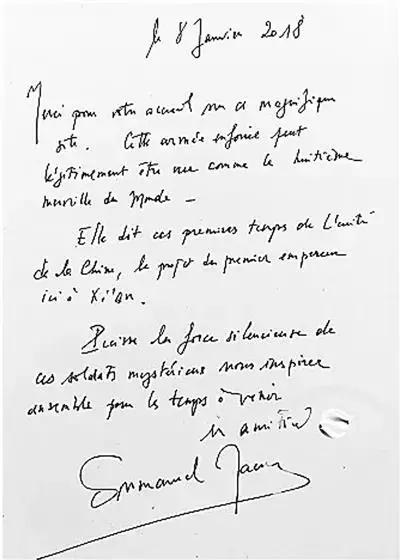 le 8 Janvier 2018
Merci pour votre accueil sur ce magnifique
site. Cette armée enfouie peut
légitimement être vue comme la huitième
merveille du Monde –
Elle dit ces premiers temps de L'unité
de la Chine, le projet du premier empereur
ici à Xi'an.
Puisse la force silencieuse de
ces soldats mystérieux nous inspirer
ensemble pour les temps à venir
En amitié
Emmanuel